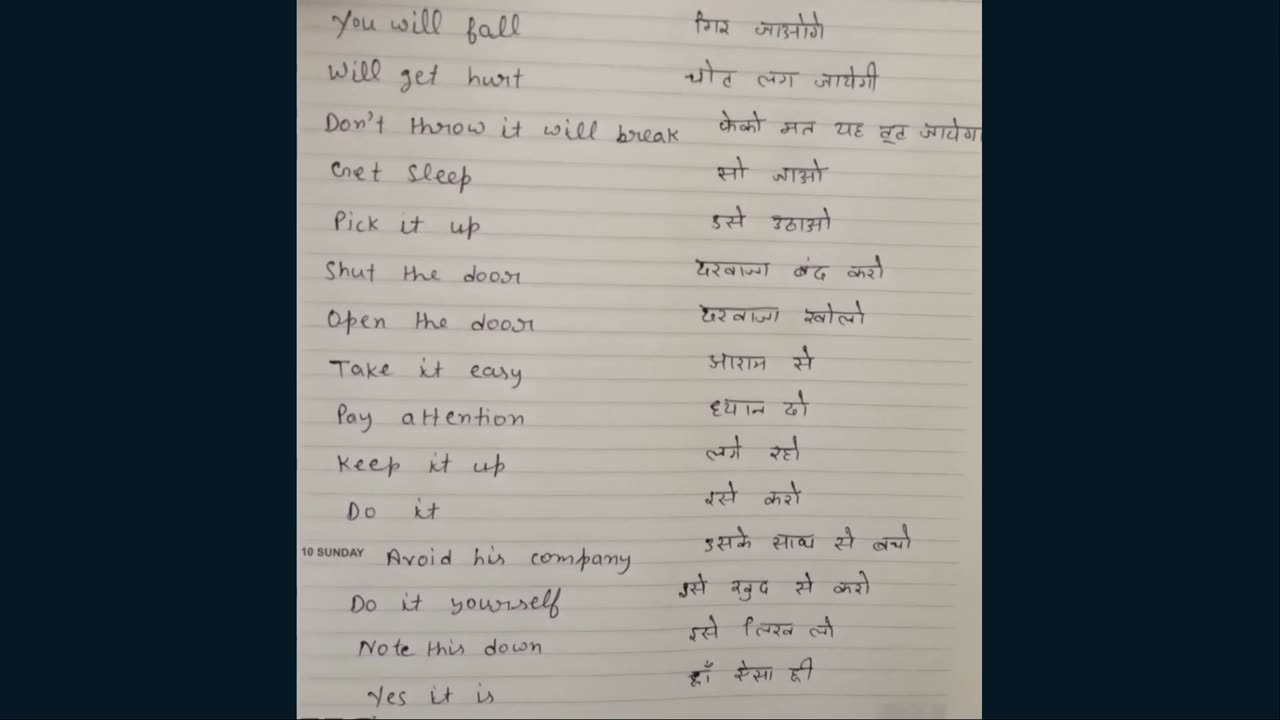 You will fall गिर जाओगे
Will get hurt चोट लग जायेगी
Don't throw it will break फेको मत यह टूट जायेगा
Get sleep सो जाओ
Pick it up इसे उठाओ
Shut the door दरवाजा बंद करो
Open the door दरवाजा खोलो
Take it easy आराम से
Pay attention ध्यान दो
Keep it up लगे रहो
Do it इसे करो
10 SUNDAY Avoid his company उसके साथ से बचो
Do it yourself इसे खुद से करो
Note this down इसे लिख लो
Yes it is हाँ ऐसा ही